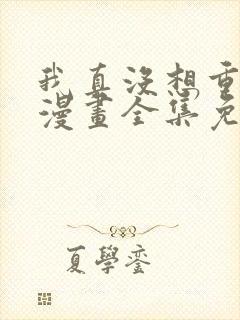 我真没想重
漫畫全集免
夏學鑾